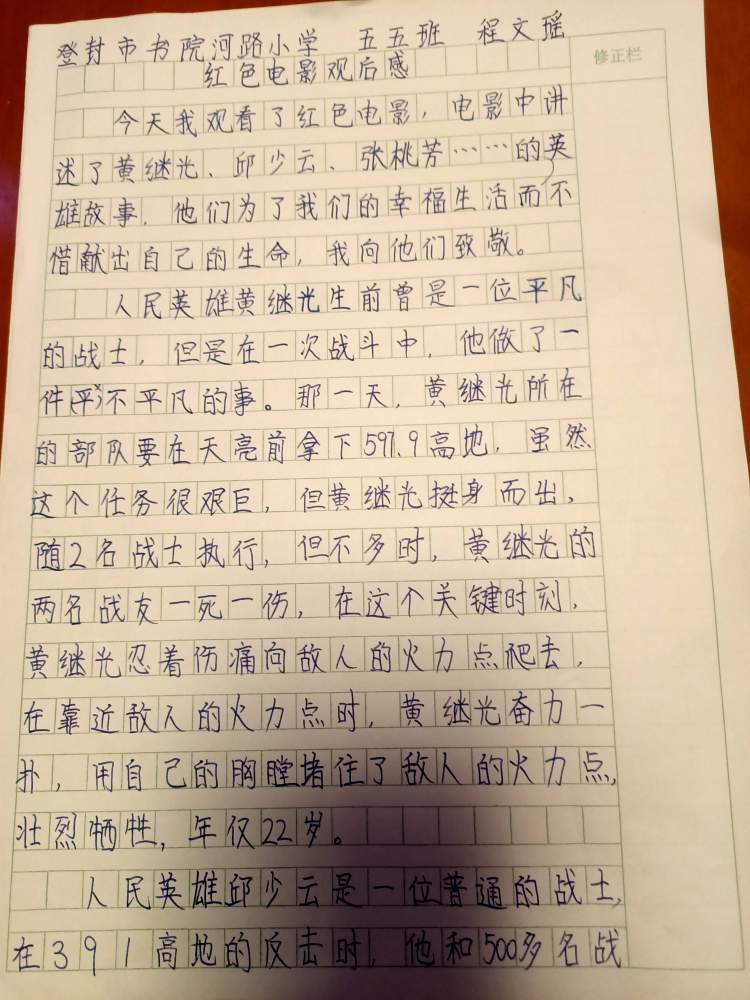 登封市书院河路小学 五五班 程文瑶
修正栏
红色电影观后感
今天我观看了红色电影,电影中讲
述了黄继光、邱少云、张桃芳……的英
雄故事,他们为了我们的幸福生活而不
惜献出自己的生命,我向他们致敬。
人民英雄黄继光生前曾是一位平凡
的战士,但是在一次战斗中,他做了一
件(平)不平凡的事。那一天,黄继光所在
的部队要在天亮前拿下597.9高地,虽然
这个任务很艰巨,但黄继光挺身而出,
随2名战士执行,但不多时,黄继光的
两名战友一死一伤,在这个关键时刻,
黄继光忍着伤痛向敌人的火力点爬去,
在靠近敌人的火力点时,黄继光奋力一
扑,用自己的胸膛堵住了敌人的火力点,
壮烈牺牲,年仅22岁。
人民英雄邱少云是一位普通的战士,
在391高地的反击时,他和500多名战